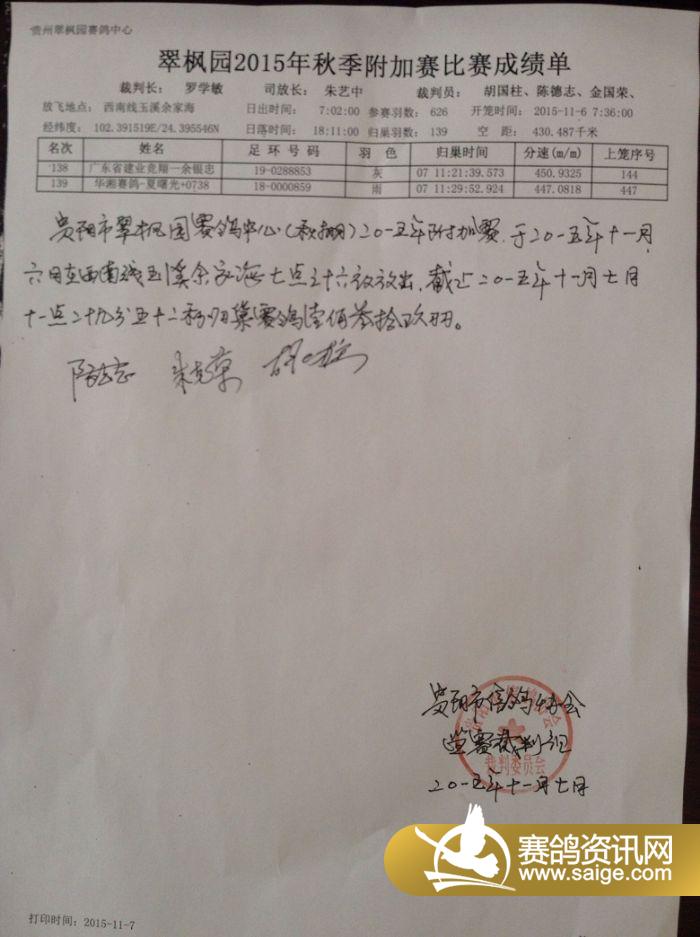 贵州翠枫园赛鸽中心
翠枫园2015年秋季附加赛比赛成绩单
裁判长: 罗学敏 司放长: 朱艺中 裁判员: 胡国柱、陈德志、金国荣、
放飞地点: 西南线玉溪余家海 日出时间: 7:02:00 参赛羽数: 626 开笼时间: 2015-11-6 7:36:00
经纬度: 102.391519E/24.395546N 日落时间: 18:11:00 归巢羽数: 139 空 距: 430.487千米
名次 姓名 足 环 号 码 羽 色 归巢时间 分速(m/m) 上笼序号
138 广东省建业竞翔—余银志 19-0288853 灰 07 11:21:39.573 450.9325 144
139 华湘赛鸽-夏曙光+0738 18-0000859 雨 07 11:29:52.914 447.0818 447
贵阳市翠枫园赛鸽中心(秋棚)二0一五年附加赛,于二0一五年十一月
六日在西南线玉溪余家海七点三十六分放出,截止二0一五年十一月七日
十一点二十九分五十二秒归巢赛鸽壹佰叁拾玖羽。
贵阳市信鸽协会
监赛裁判组
裁判委员会
二0一五年十一月七日
赛鸽资讯网
www.saige.com
打印时间: 2015-11-7